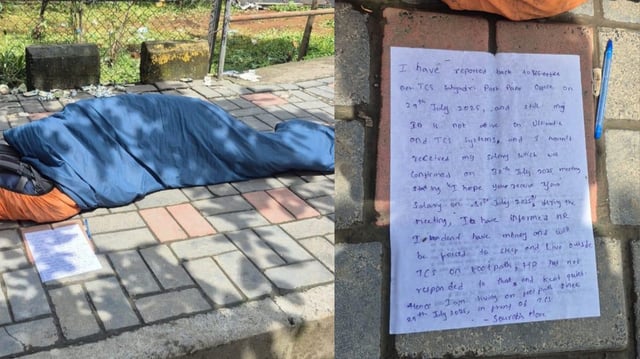 I have reported back to office
on TCS Sahyadri Park Pune Office on
29th July 2025, and still my
ID is not active on Ultimatix
and TCS systems, and I haven't
received my salary which was
confirmed on 30th July 2025 meeting
I hope you receive your
Salary on 31st July 2025, during the
meeting, I have informed HR
I don't have money and will
be forced to sleep and live outside
TCS on footpath, HR has not
responded to that, and kept quiet.
Hence I am living on footpath since
29th July 2025, in front of TCS